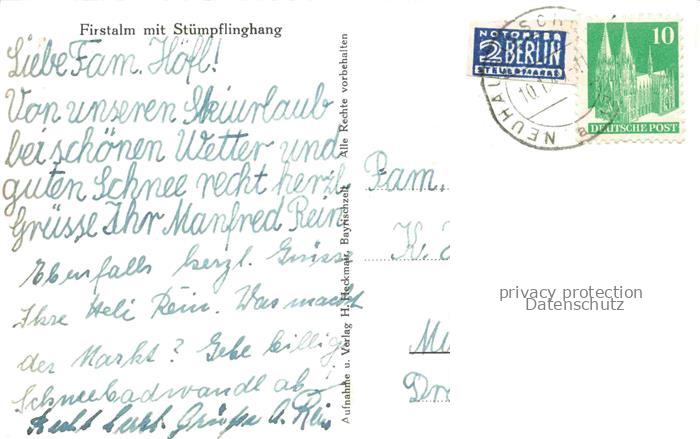 Firstalm mit Stümpflinghang
Liebe Fam. Höfl!
Von unseren Skiurlaub
bei schönen Wetter und
guten Schnee recht herzl.
Grüsse Ihr Manfred Rein
Ebenfalls herzl. Grüsse
Ihre Heli Rein. Was macht
der Markt? Gebe billig
Schneebadwandl ab!
Recht herzl. Grüße A. Rein
Aufnahme u. Verlag H. Heckmair, Bayrischzell Alle Rechte vorbehalten
NOTOPFER
2 BERLIN
STEUERMARKE
10
DEUTSCHE POST
NEUHAU
Fam.
K.
Mü
privacy protection
Datenschutz